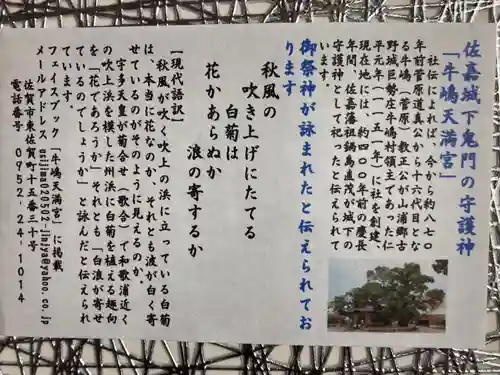 佐嘉城下鬼門の守護神
「牛嶋天満宮」
社伝によれば、今から約八七〇
年前菅原道真公から十六代目とな
る牛嶋（菅原）教正公が山浦郷古
野城巨勢庄牛嶋村領主であった仁
平元年（一一五一年）に社を創建、
現在地には、約四〇〇年前の慶長
年間、佐嘉藩祖鍋島直茂が城下の
守護神として祀ったと伝えられて
います。
御祭神が詠まれたと伝えられてお
ります
秋風の
吹き上げにたてる
白菊は
花かあらぬか
浪の寄するか
【現代語訳】
秋風が吹く吹上の浜に立っている白菊
は、本当に花なのか、それとも波が白く寄
せているのがそのように見えるのか、
宇多天皇が菊合せ（歌合）で和歌浦近く
の吹上浜を模した州浜に白菊を植える趣向
を「花であろうか」それとも「白浪が寄せ
ているのでしょうか」と詠んだと伝えられ
ています。
フェイスブック「牛嶋天満宮」に掲載
メールアドレス usijima020502-jinjya@yahoo.co.jp
佐賀市東佐賀町十五番三十号
電話番号 0952-24-1014